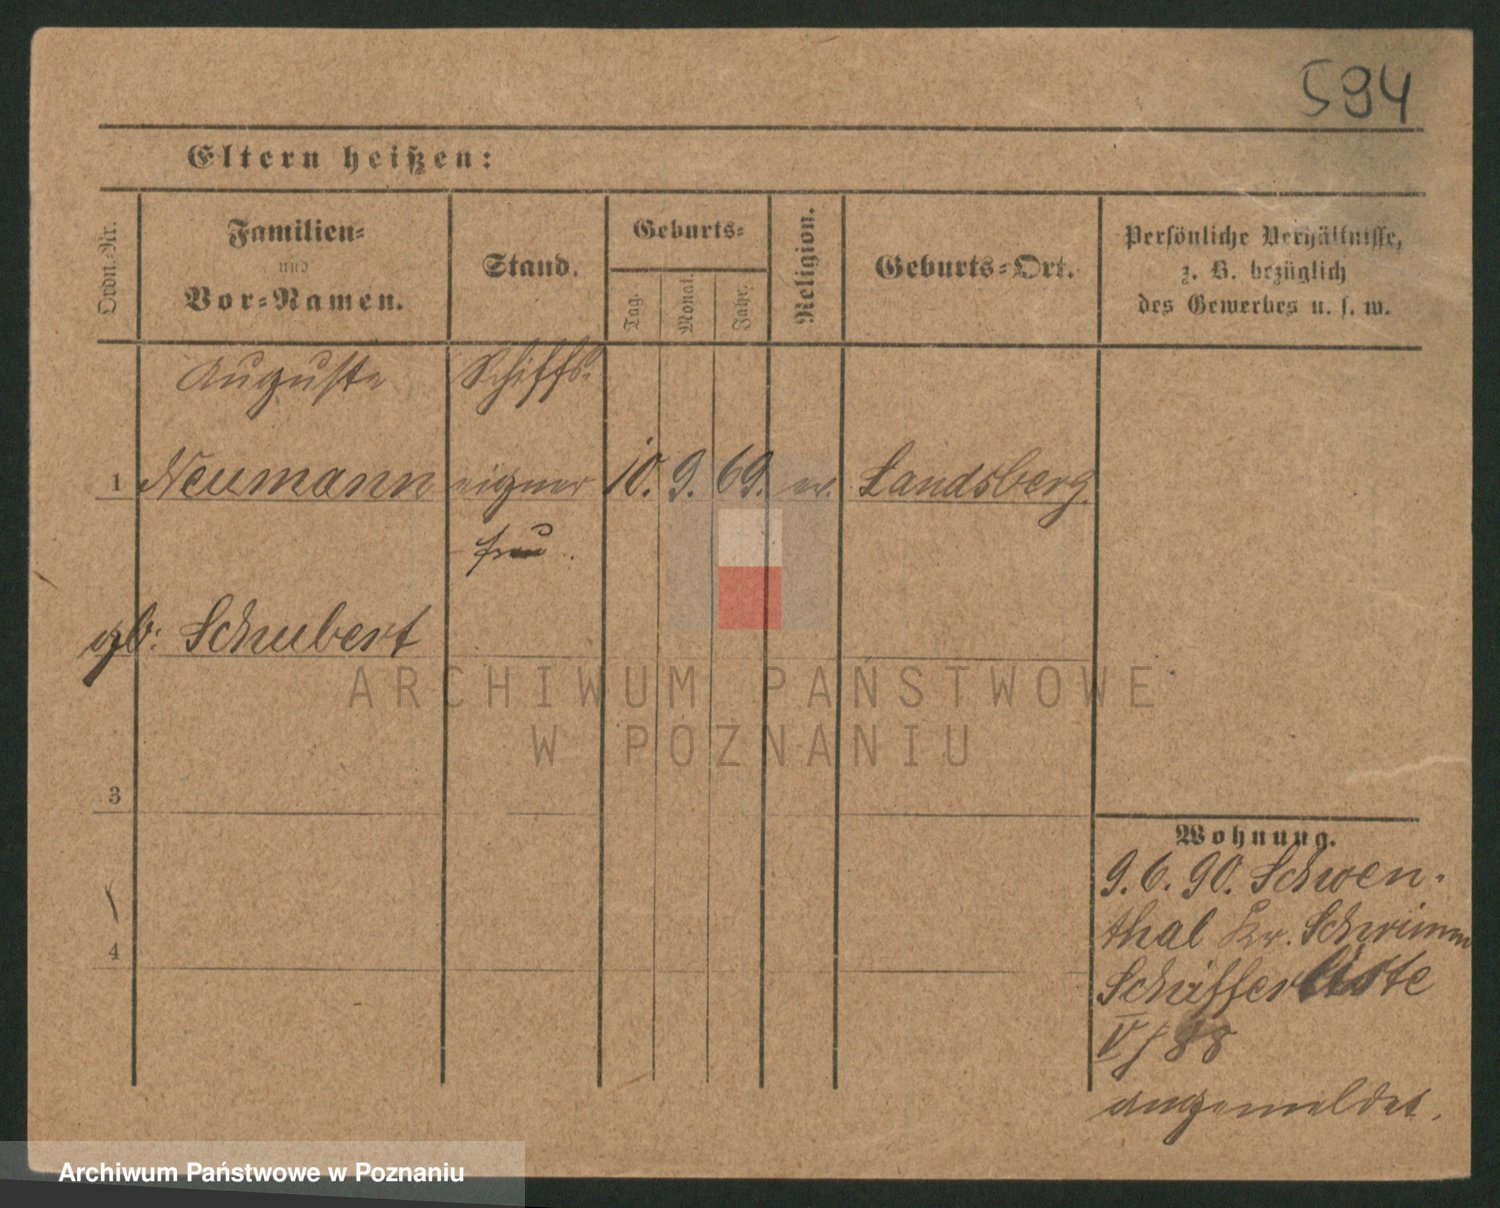 594
Eltern heißen:
Ordn.-Nr.
Familien-
und
Vor-Namen.
Stand.
Geburts-
Tag.
Monat.
Jahr.
Religion.
Geburts-Ort.
Persönliche Verhältnisse,
z. B. bezüglich
des Gewerbes u. s. w.
Auguste Schiffs-
1 Neumann eigner 10. 9. 69. ev. Landsberg
frau.
gb: Schubert
ARCHIWUM PAŃSTWOWE
W POZNANIU
3
Wohnung.
9. 6. 90. Schwen-
thal Kr. Schwimm
4
Schifferliste
V f 88
angemeldet.
Archiwum Państwowe w Poznaniu